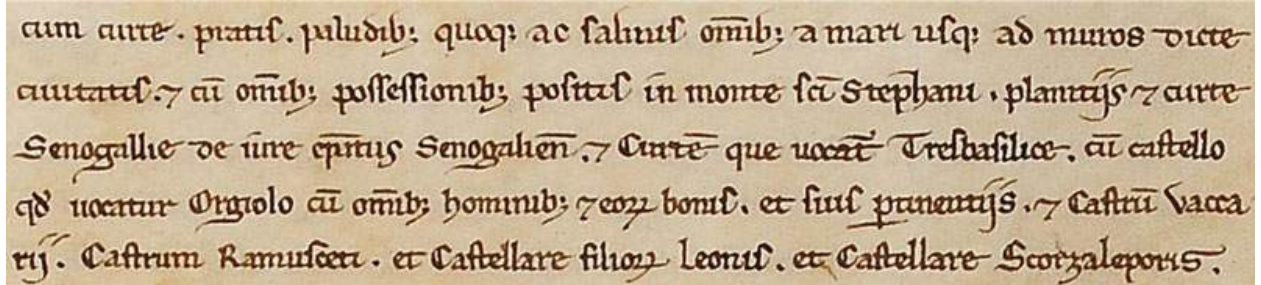 cum curte. pratis. paludib; quoq; ac salinis om̄ib; a mari usq; ad muros dicte
ciuitatis. ⁊ cū om̄ib; possessionib; positis in monte sc̄i Steph̄ani. planitijs ⁊ curte
Senogallie de iure ep̄atus Senogalien̄. ⁊ Curtē que uocat̄ Tresbasilice. cū castello
qd̄ uocatur Orgiolo cū om̄ib; hominib; ⁊ eoꝝ bonis. et suis ꝑtinentijs. ⁊ Castrū Vacca
rij. Castrum Ramusceti. et Castellare filioꝝ Leonis. et Castellare Scorzaleporis.